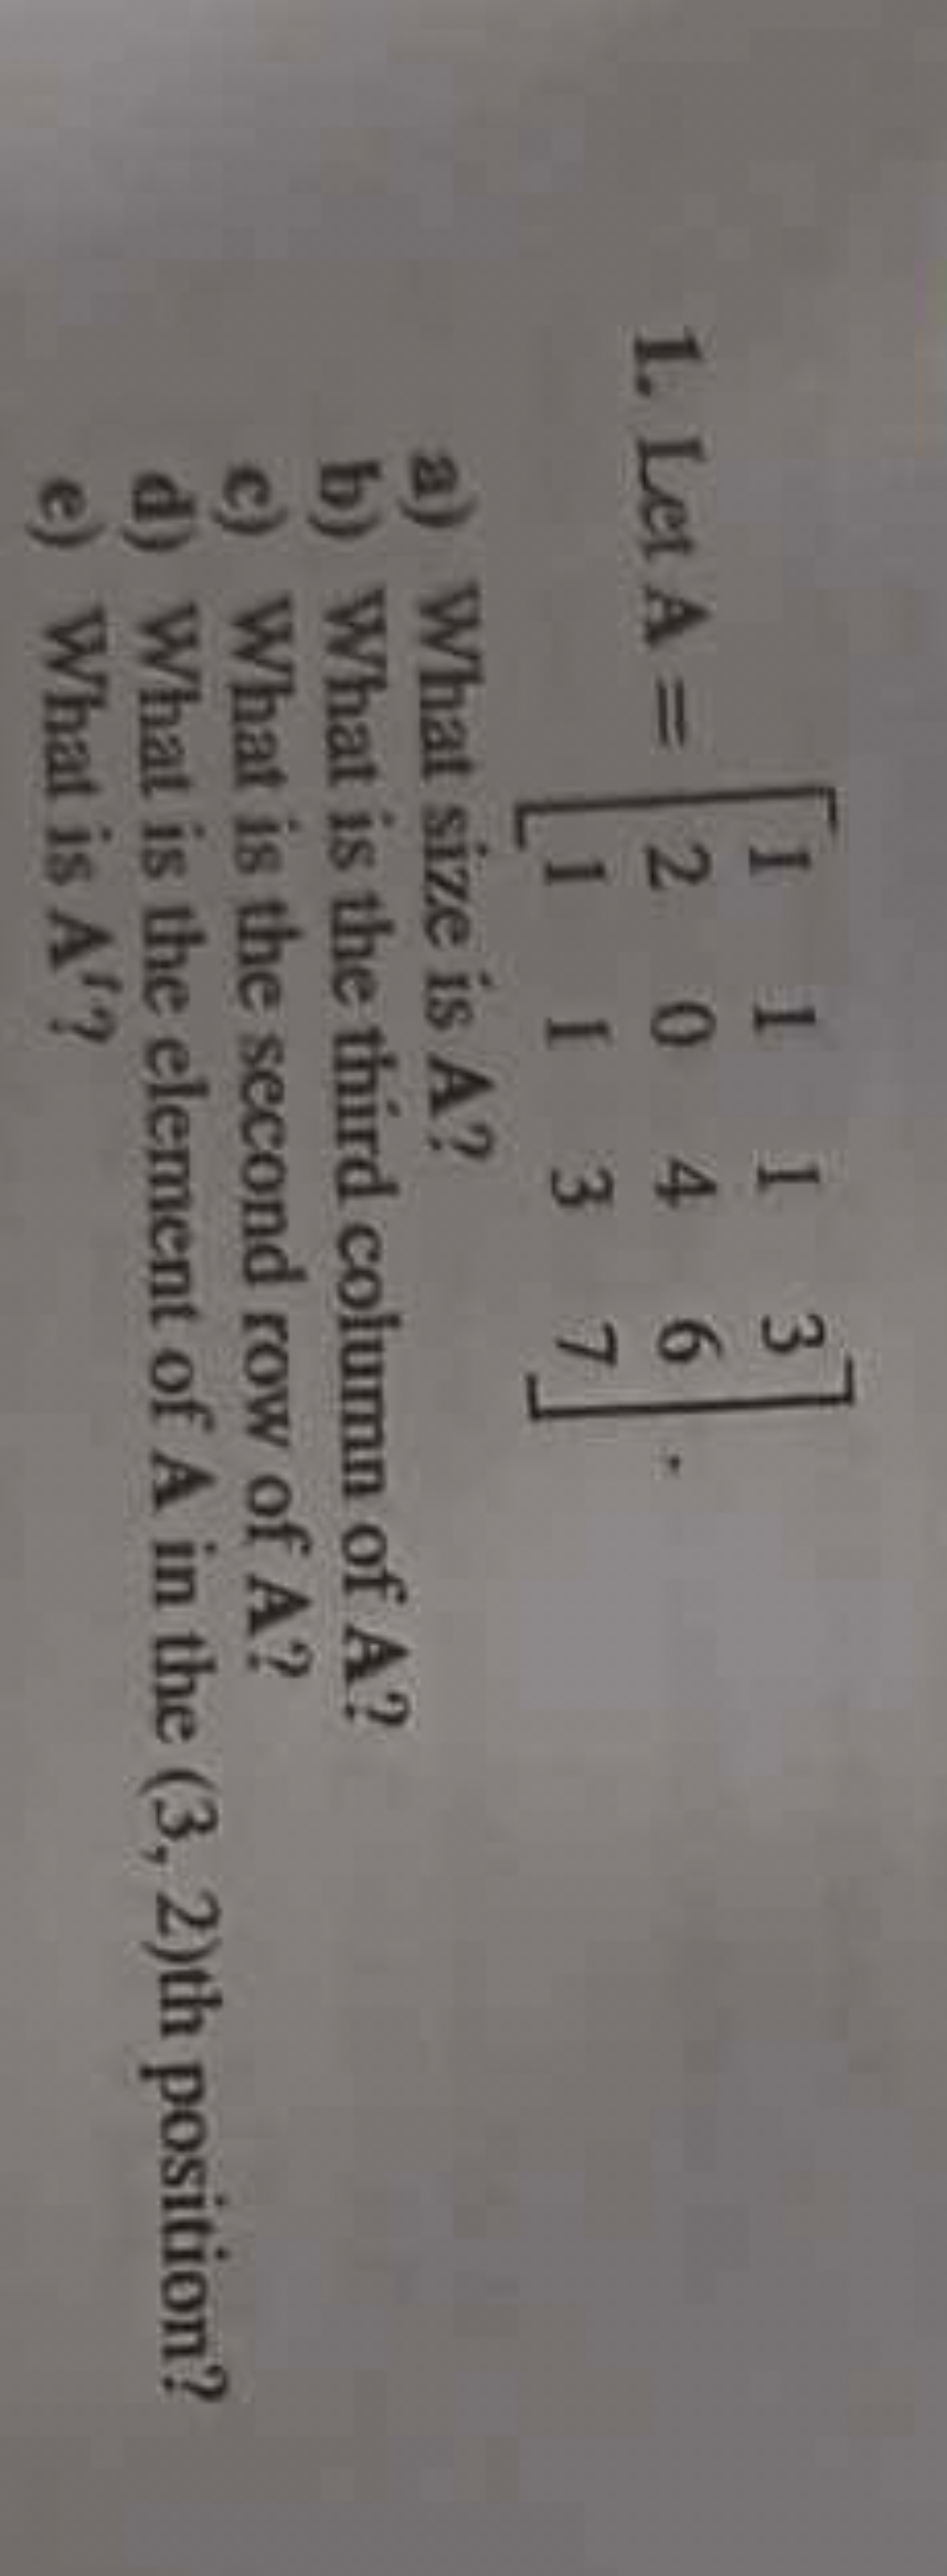 1. Let A = [1 1 1 3
2 0 4 6
1 1 3 7].
a) What size is A?
b) What is the third column of A?
c) What is the second row of A?
d) What is the element of A in the (3, 2)th position?
e) What is A'?